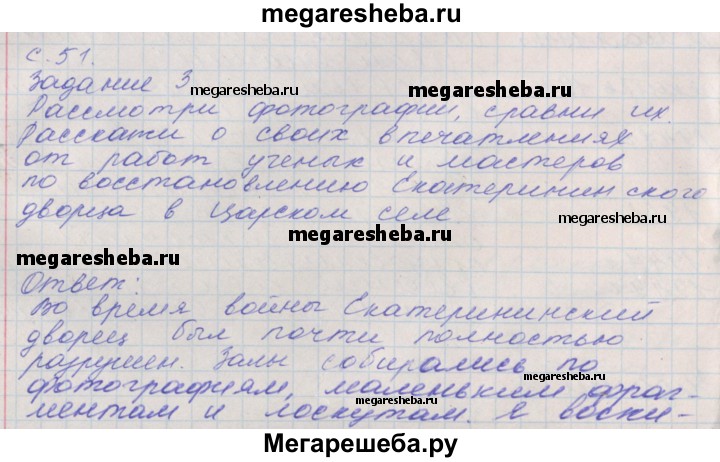 megaresheba.ru
с. 51.
Задание 3
megaresheba.ru
megaresheba.ru
Рассмотри фотографии, сравни их.
Расскажи о своих впечатлениях
от работ ученык и мастеров
по восстановлению Екатерининского
дворца в Царском селе
megaresheba.ru
megaresheba.ru
megaresheba.ru
Ответ:
Во время войны Екатерининский
дворец был почти полностью
разрушен. Залы собирались по
megaresheba.ru
фотографиям, маленьким фраг-
ментам и лоскутам. Я восхи-
megaresheba.ru
Мегарешеба.ру